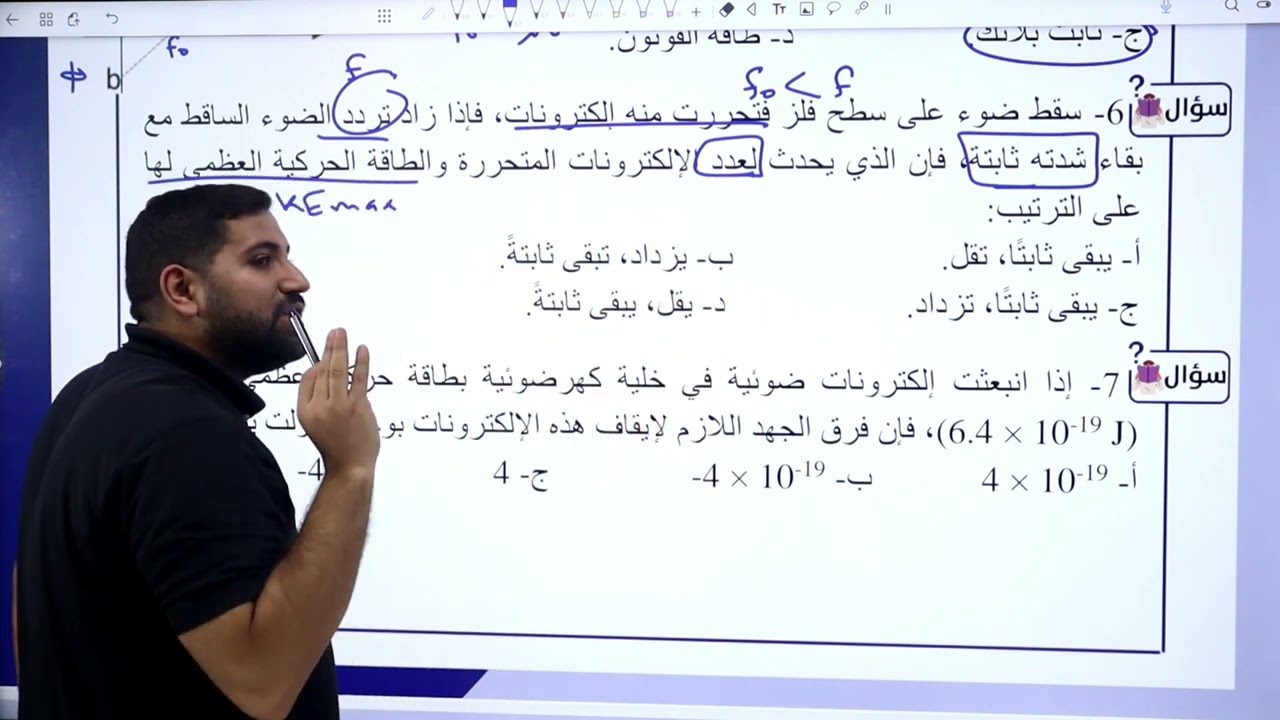 ج- ثابت بلانك
د- طاقة الفوتون.
f₀
b
f
f₀ < f
سؤال
?
6- سقط ضوء على سطح فلز فتحررت منه إلكترونات، فإذا زاد تردد الضوء الساقط مع
بقاء شدته ثابتة، فإن الذي يحدث لعدد الإلكترونات المتحررة والطاقة الحركية العظمى لها
KEmax
على الترتيب:
أ- يبقى ثابتًا، تقل.
ب- يزداد، تبقى ثابتةً.
ج- يبقى ثابتًا، تزداد.
د- يقل، يبقى ثابتةً.
سؤال
?
7- إذا انبعثت إلكترونات ضوئية في خلية كهرضوئية بطاقة
(6.4 × 10⁻¹⁹ J)، فإن فرق الجهد اللازم لإيقاف هذه الإلكترونات
أ- 4 × 10⁻¹⁹
ب- -4 × 10⁻¹⁹
ج- 4
-4